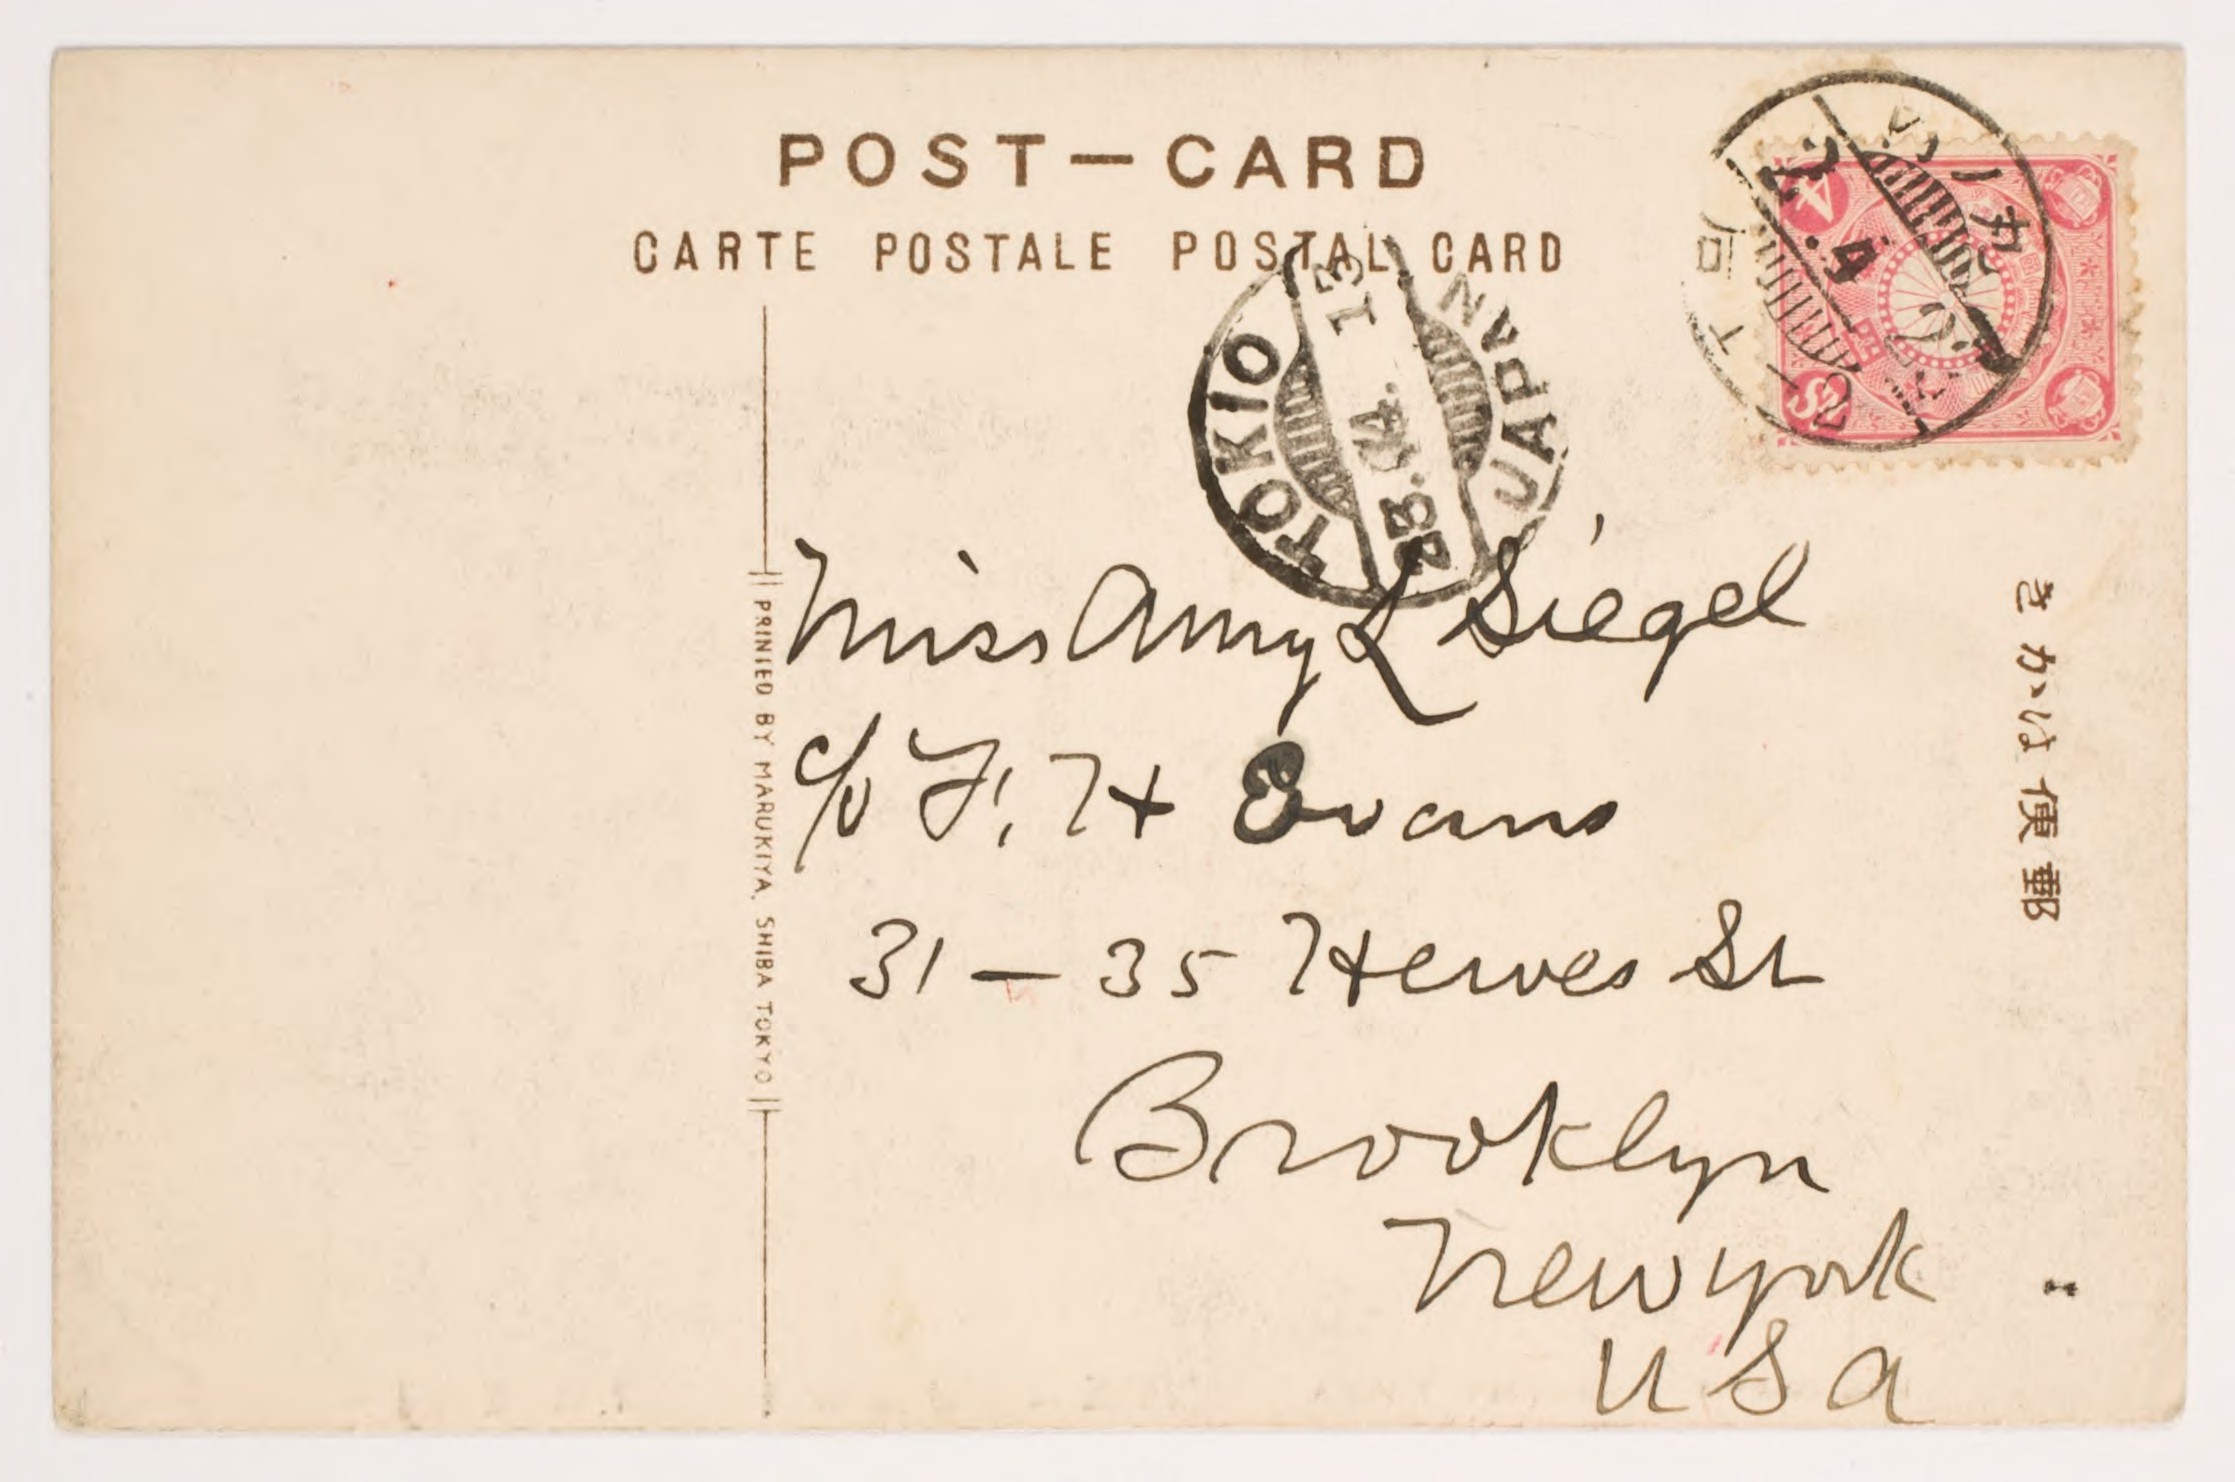 POST-CARD
CARTE POSTALE POSTAL CARD
TOKIO
JAPAN
23.4.13
4
Sn
Miss Amy L Siegel
c/o F. H Evans
31 - 35 Hewes St
Brooklyn
New York
USA
PRINIED BY MARUKIYA, SHIBA TOKYO
きかは便郵